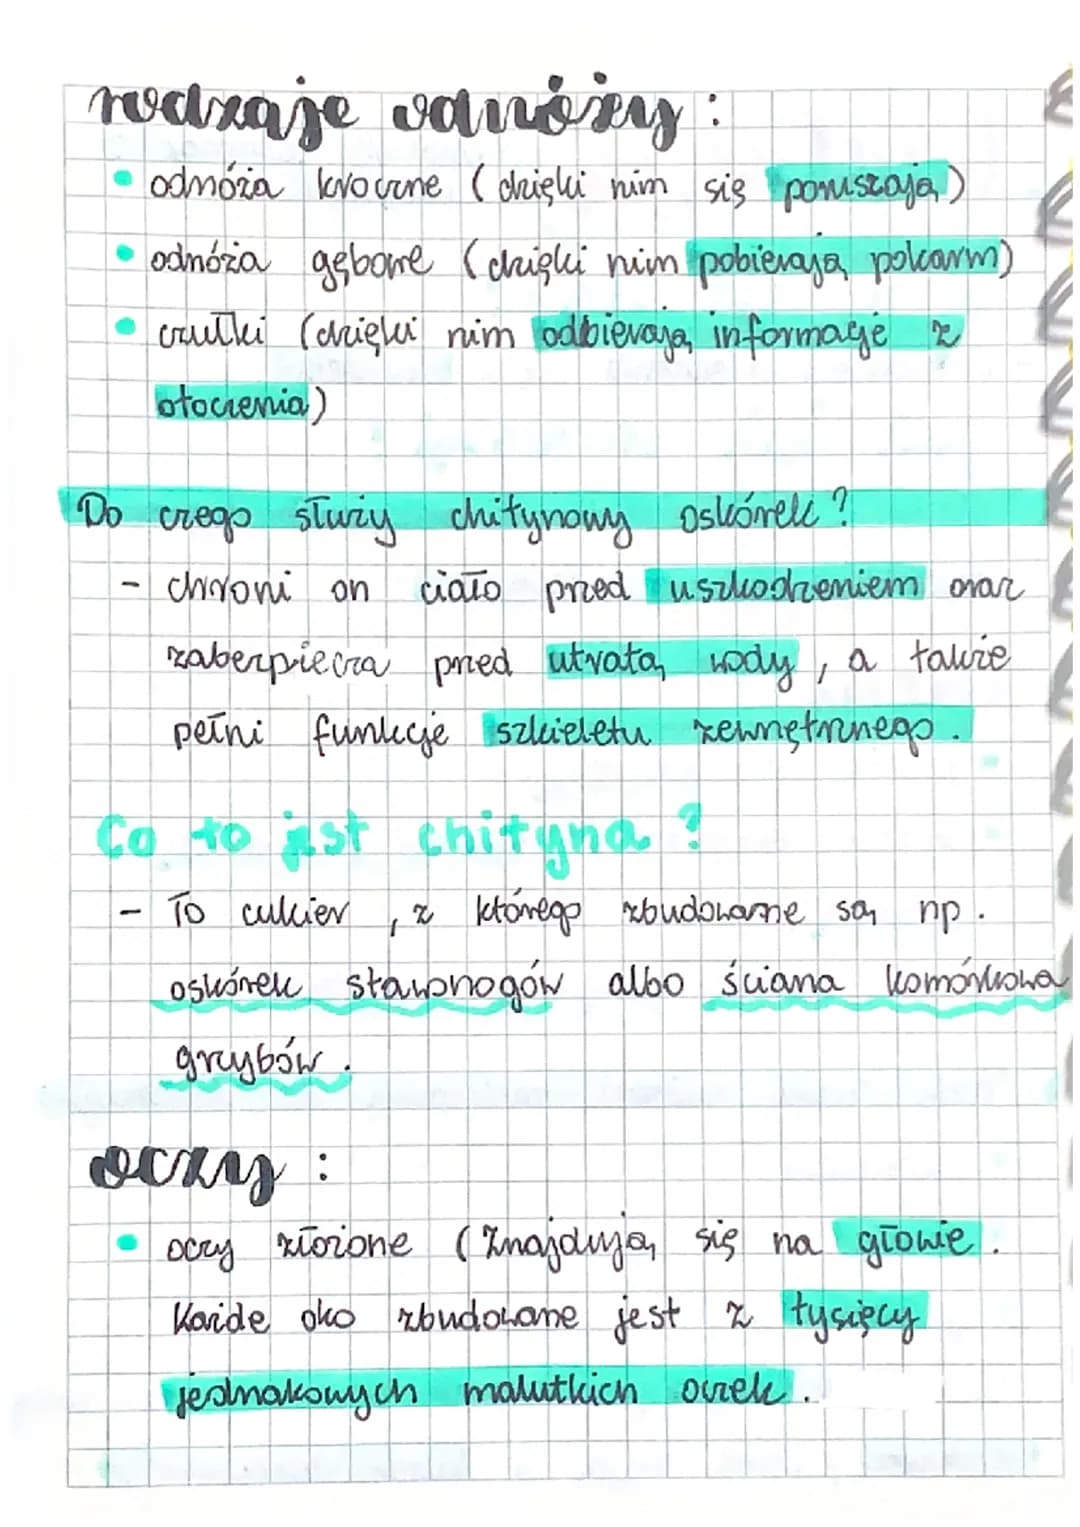 rodzaje odnóży :
• odnóża kroczne (dzięki nim się poruszają)
• odnóża gębowe (dzięki nim pobierają pokarm)
• czułki (dzięki nim odbierają informacje z
otoczenia)
Do czego służy chitynowy oskórek ?
- chroni on ciało przed uszkodzeniem oraz
zabezpiecza przed utratą wody, a także
pełni funkcje szkieletu zewnętrznego.
Co to jest chityna ?
- To cukier, z którego zbudowane są np.
oskórek stawonogów albo ściana komórkowa
grzybów.
oczy :
• oczy złożone (Znajdują się na głowie.
Każde oko zbudowane jest z tysięcy
jednakowych malutkich oczek.